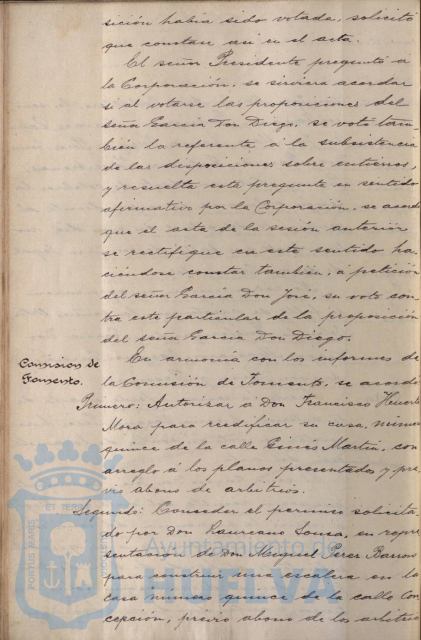 sición había sido votada, solicitó
que constase así en el acta.
El señor Presidente preguntó á
la Corporación, se sirviera acordar
si al votarse las proposiciones del
señor García Don Diego, se votó tam-
bién la referente á la subsistencia
de las disposiciones sobre entierros,
y resuelta esta pregunta en sentido
afirmativo por la Corporación, se acordó
que el acta de la sesión anterior
se rectifique en este sentido ha-
ciéndose constar también, á petición
del señor García Don José, su voto con-
tra este particular de la proposición
del señor García Don Diego.
Comision de
Fomento.
En armonía con los informes de
la Comisión de Fomento, se acordó
Primero: Autorizar á Don Francisco
Mora para reedificar su casa, número
quince de la calle Ginés Martín, con
arreglo á los planos presentados y pre-
vio abono de arbitrios.
Segundo: Conceder el permiso solicita-
do por Don Laureano Sousa, en repre-
sentacion de Don Miguel Perez Barroso
para construir una escalera en la
casa número quince de la calle Con-
cepción, previo abono de los arbitrios
PORTUS MARIS
ET TERRE
Ayuntamiento de
HUELVA